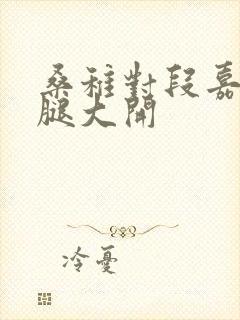 桑稚對段嘉
腿大開
冷憂